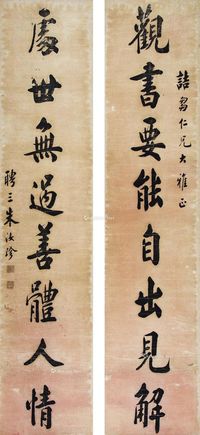 觀書要能自出見解
喆勗仁兄大雅正
處世無過善體人情
聘三朱汝珍